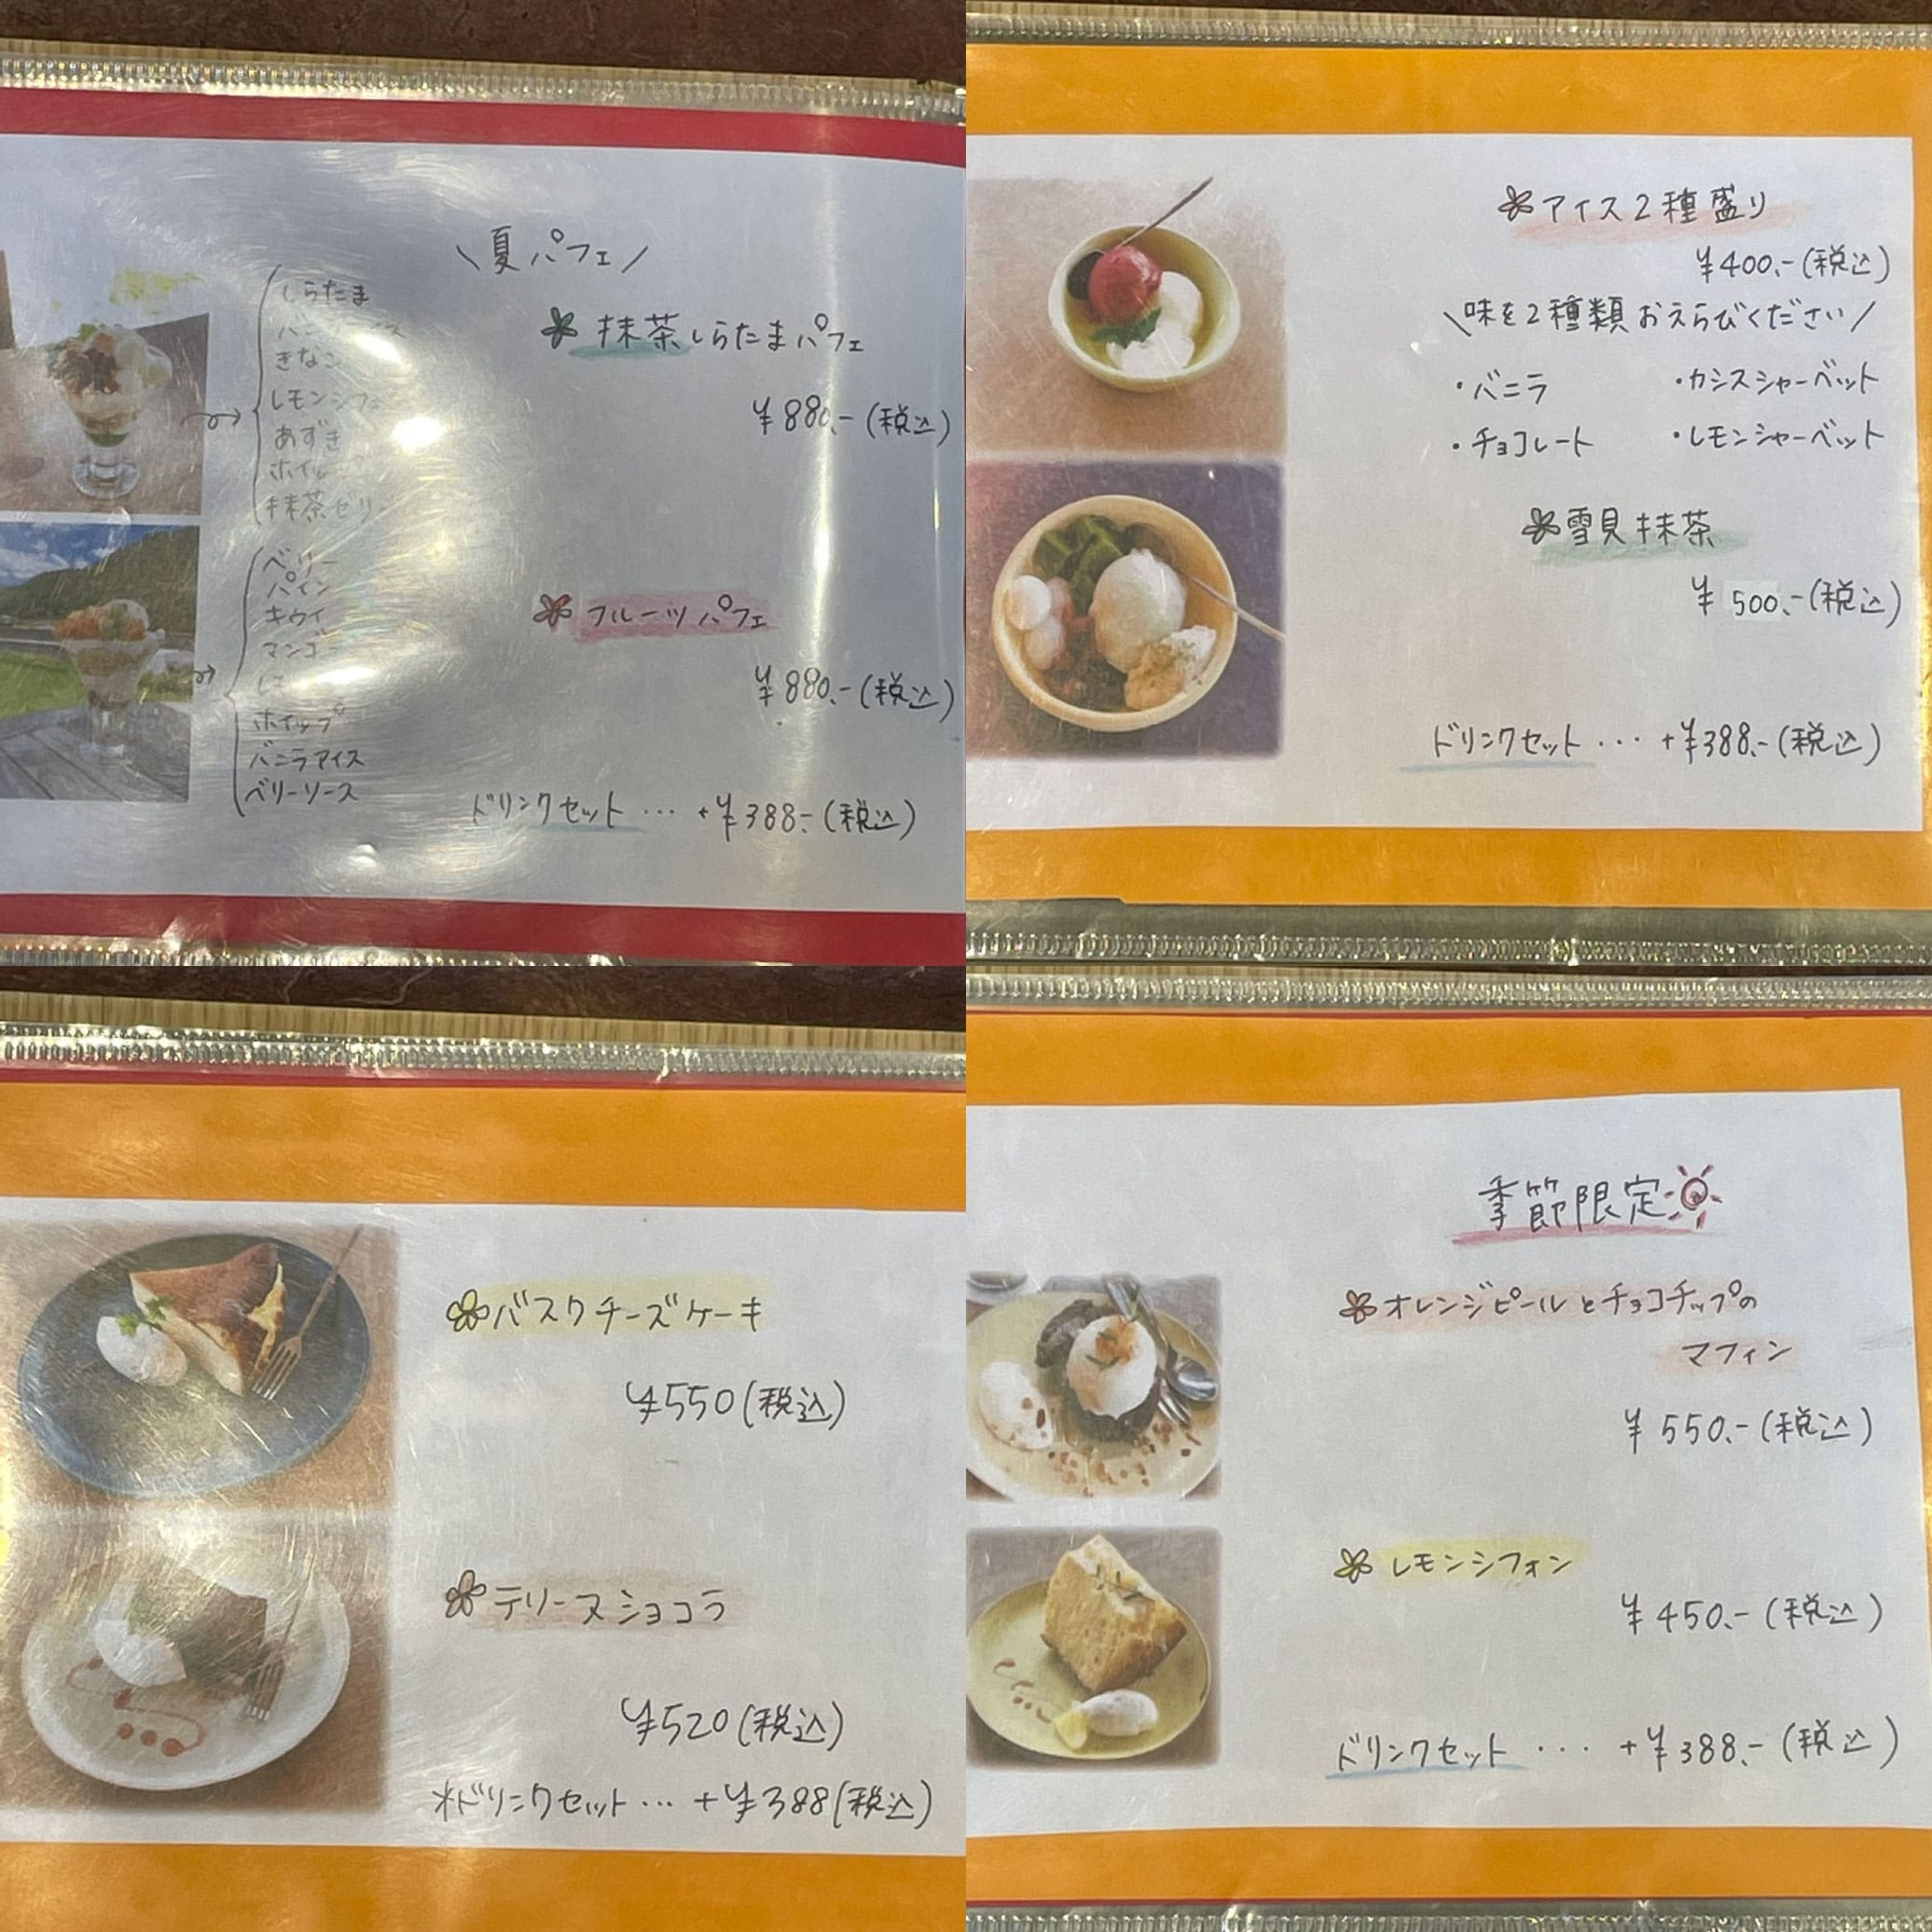 \夏パフェ/
しらたま
きなこ
レモンシフォン
あずき
ホイップ
抹茶ゼリー
抹茶しらたまパフェ
¥880.-(税込)
ベリー
パイン
キウイ
マンゴー
ホイップ
バニラアイス
ベリーソース
フルーツパフェ
¥880.-(税込)
ドリンクセット・・・+¥388.-(税込)
アイス2種盛り
¥400.-(税込)
\味を2種類おえらびください/
・バニラ ・カシスシャーベット
・チョコレート ・レモンシャーベット
雪見抹茶
¥500.-(税込)
ドリンクセット・・・+¥388.-(税込)
バスクチーズケーキ
¥550(税込)
テリーヌショコラ
¥520(税込)
*ドリンクセット・・・+¥388(税込)
季節限定
オレンジピールとチョコチップの
マフィン
¥550.-(税込)
レモンシフォン
¥450.-(税込)
ドリンクセット・・・・+¥388.-(税込)